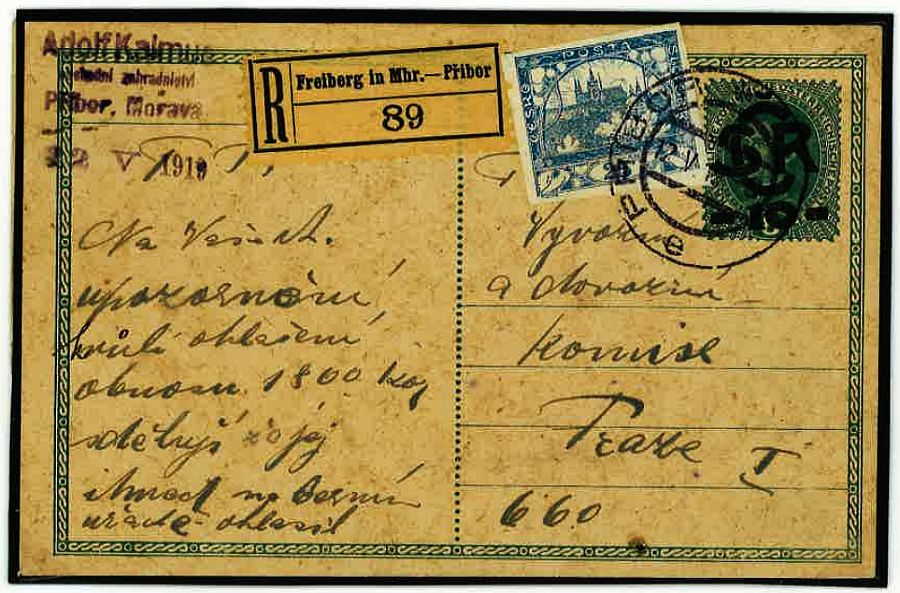 Adolf Kalmus
obchodní zahradnictví
Příbor, Morava
12 V 1919
R
Freiberg in Mhr.—Příbor
89
POŠTA
ČESKO
25
12. V.
10
T. T.
Na Vaše
upozornění
kvůli ohlášení
obnosu 1800 kor
sděluji že jej
ihned na berním
úřadě ohlásil
Vývozní
a dovozní
komise
Praze I
660